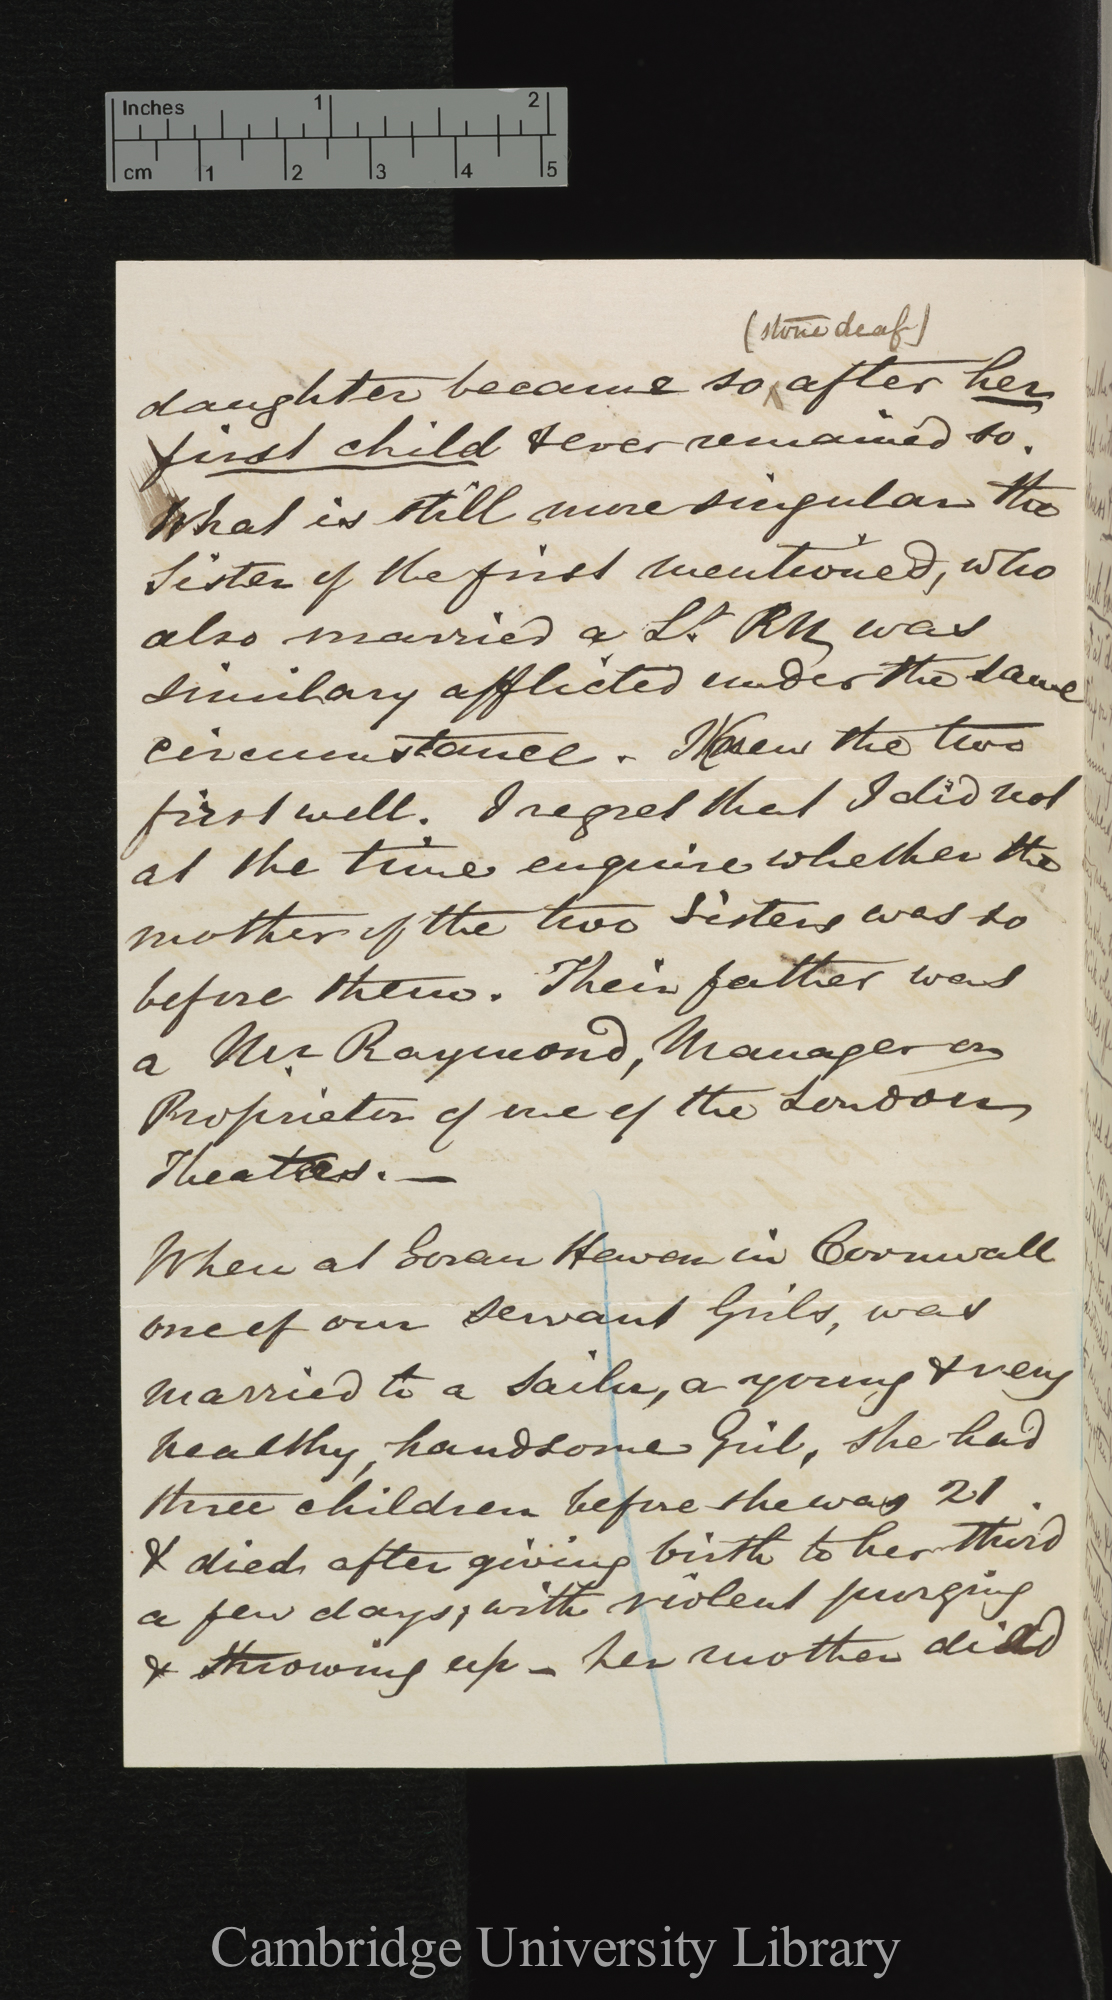 Inches 1 2
cm 1 2 3 4 5
(stone deaf)
daughter became so, after her
first child & ever remained so.
What is still more singular the
Sister of the first mentioned, who
also married a Lt. RN, was
similary afflicted under the same
circumstance. I Knew the two
first well. I regret that I did not
at the time enquire whether the
mother of the two Sisters was so
before them. Their father was
a Mr. Raymond, Manager or
Proprietor of one of the London
Theatres. —
When at Goran Haven in Cornwall
one of our servant Girls, was
married to a Sailor, a young & very
healthy, handsome Girl, she had
three children before she was 21.
& died after giving birth to her third
a few days; with violent purging
& throwing up - her mother died
Cambridge University Library